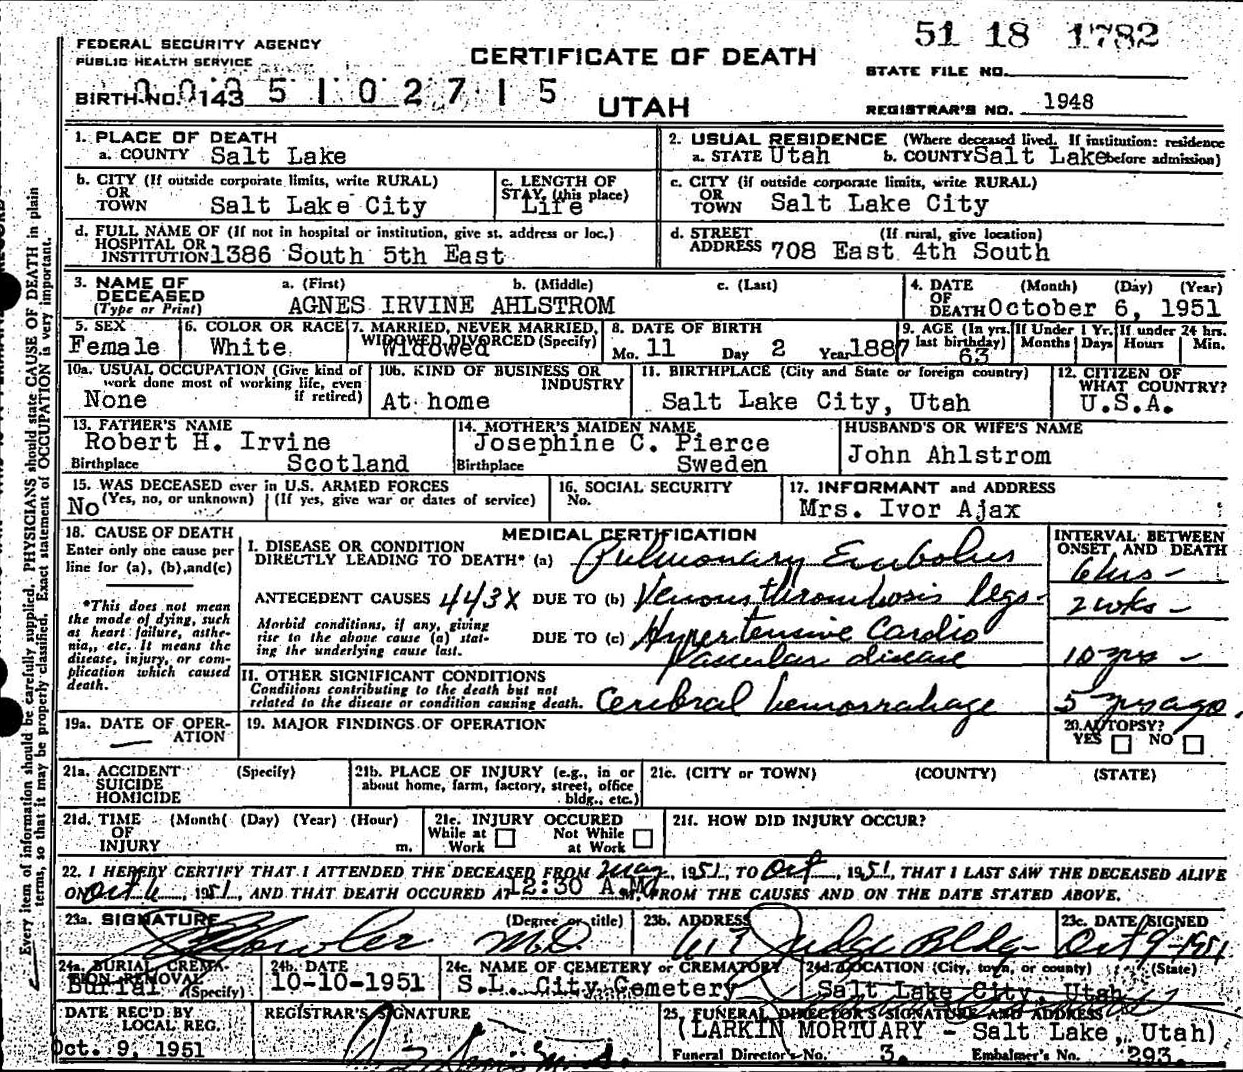 51 18 1782
FEDERAL SECURITY AGENCY
PUBLIC HEALTH SERVICE
CERTIFICATE OF DEATH
STATE FILE NO.
BIRTH NO. 143 5 1 0 2 7 1 5
UTAH
REGISTRAR'S NO. 1948
1. PLACE OF DEATH
a. COUNTY Salt Lake
2. USUAL RESIDENCE (Where deceased lived. If institution: residence before admission)
a. STATE Utah b. COUNTY Salt Lake
b. CITY (If outside corporate limits, write RURAL) OR TOWN Salt Lake City
c. LENGTH OF STAY (this place) Life
c. CITY (if outside corporate limits, write RURAL) OR TOWN Salt Lake City
d. FULL NAME OF (If not in hospital or institution, give st. address or loc.) HOSPITAL OR INSTITUTION 1386 South 5th East
d. STREET ADDRESS (If rural, give location) 708 East 4th South
3. NAME OF DECEASED (Type or Print) a. (First) b. (Middle) c. (Last)
AGNES IRVINE AHLSTROM
4. DATE OF DEATH (Month) (Day) (Year) October 6, 1951
5. SEX Female
6. COLOR OR RACE White
7. MARRIED, NEVER MARRIED, WIDOWED, DIVORCED (Specify) Widowed
8. DATE OF BIRTH Mo. 11 Day 2 Year 1887
9. AGE (In yrs. last birthday) 63
If Under 1 Yr. Months Days
If under 24 hrs. Hours Min.
10a. USUAL OCCUPATION (Give kind of work done most of working life, even if retired) None
10b. KIND OF BUSINESS OR INDUSTRY At home
11. BIRTHPLACE (City and State or foreign country) Salt Lake City, Utah
12. CITIZEN OF WHAT COUNTRY? U.S.A.
13. FATHER'S NAME Robert H. Irvine
Birthplace Scotland
14. MOTHER'S MAIDEN NAME Josephine C. Pierce
Birthplace Sweden
HUSBAND'S OR WIFE'S NAME
John Ahlstrom
15. WAS DECEASED ever in U.S. ARMED FORCES
No (Yes, no, or unknown) (If yes, give war or dates of service)
16. SOCIAL SECURITY No.
17. INFORMANT and ADDRESS
Mrs. Ivor Ajax
18. CAUSE OF DEATH
Enter only one cause per line for (a), (b), and (c)
*This does not mean the mode of dying, such as heart failure, asthenia, etc. It means the disease, injury, or complication which caused death.
MEDICAL CERTIFICATION
INTERVAL BETWEEN ONSET AND DEATH
I. DISEASE OR CONDITION DIRECTLY LEADING TO DEATH* (a) Pulmonary Embolus 6 hrs-
ANTECEDENT CAUSES 443X DUE TO (b) Venous thrombosis legs- 2 wks-
Morbid conditions, if any, giving rise to the above cause (a) stating the underlying cause last.
DUE TO (c) Hypertensive Cardio Vascular disease 10 yrs-
II. OTHER SIGNIFICANT CONDITIONS
Conditions contributing to the death but not related to the disease or condition causing death. Cerebral hemorrahage 5 yrs ago.
19a. DATE OF OPERATION —
19. MAJOR FINDINGS OF OPERATION
20. AUTOPSY? YES NO
21a. ACCIDENT SUICIDE HOMICIDE (Specify)
21b. PLACE OF INJURY (e.g., in or about home, farm, factory, street, office bldg., etc.)
21c. (CITY or TOWN) (COUNTY) (STATE)
21d. TIME OF INJURY (Month( (Day) (Year) (Hour) m.
21e. INJURY OCCURED While at Work Not While at Work
21f. HOW DID INJURY OCCUR?
22. I HEREBY CERTIFY THAT I ATTENDED THE DECEASED FROM May, 1951, TO Oct, 1951, THAT I LAST SAW THE DECEASED ALIVE
ON Oct 6, 1951, AND THAT DEATH OCCURED AT 12:30 A.M. M. FROM THE CAUSES AND ON THE DATE STATED ABOVE.
23a. SIGNATURE (Degree or title) Fowler M.D.
23b. ADDRESS Judge Bldg-
23c. DATE SIGNED Oct 9-1951
24a. BURIAL, CREMATION, REMOVAL (Specify) Burial
24b. DATE 10-10-1951
24c. NAME OF CEMETERY or CREMATORY S.L. City Cemetery
24d. LOCATION (City, town, or county) (State) Salt Lake City, Utah
DATE REC'D BY LOCAL REG. Oct. 9, 1951
REGISTRAR'S SIGNATURE
25. FUNERAL DIRECTOR'S SIGNATURE AND ADDRESS
(LARKIN MORTUARY - Salt Lake, Utah)
Funeral Director's No. 3. Embalmer's No. 293.
Every item of information should be carefully supplied. PHYSICIANS should state CAUSE OF DEATH in plain
terms, so that it may be properly classified. Exact statement of OCCUPATION is very important.